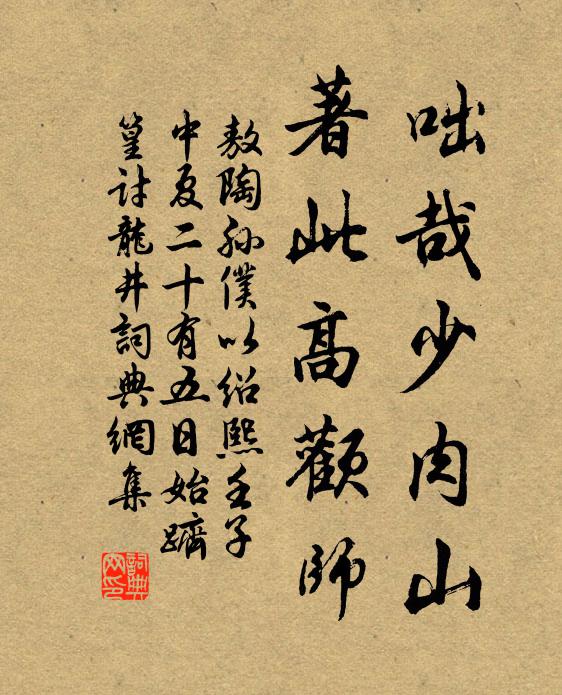 咄哉少肉山
著此高顴師
敖陶孫僕以紹熙壬子
中夏二十有五日始躋
篁討龍井詞典網集
詞典
网印